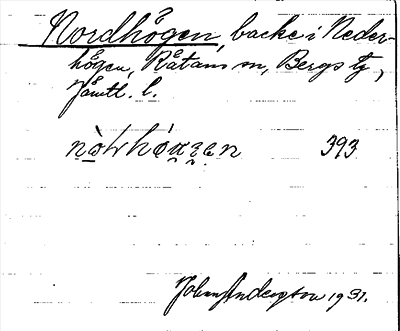 Nordhögen, backe i Neder-
högen, Råtans sn, Bergs tg,
Jämtl. l.
393
John Anderson 1931.